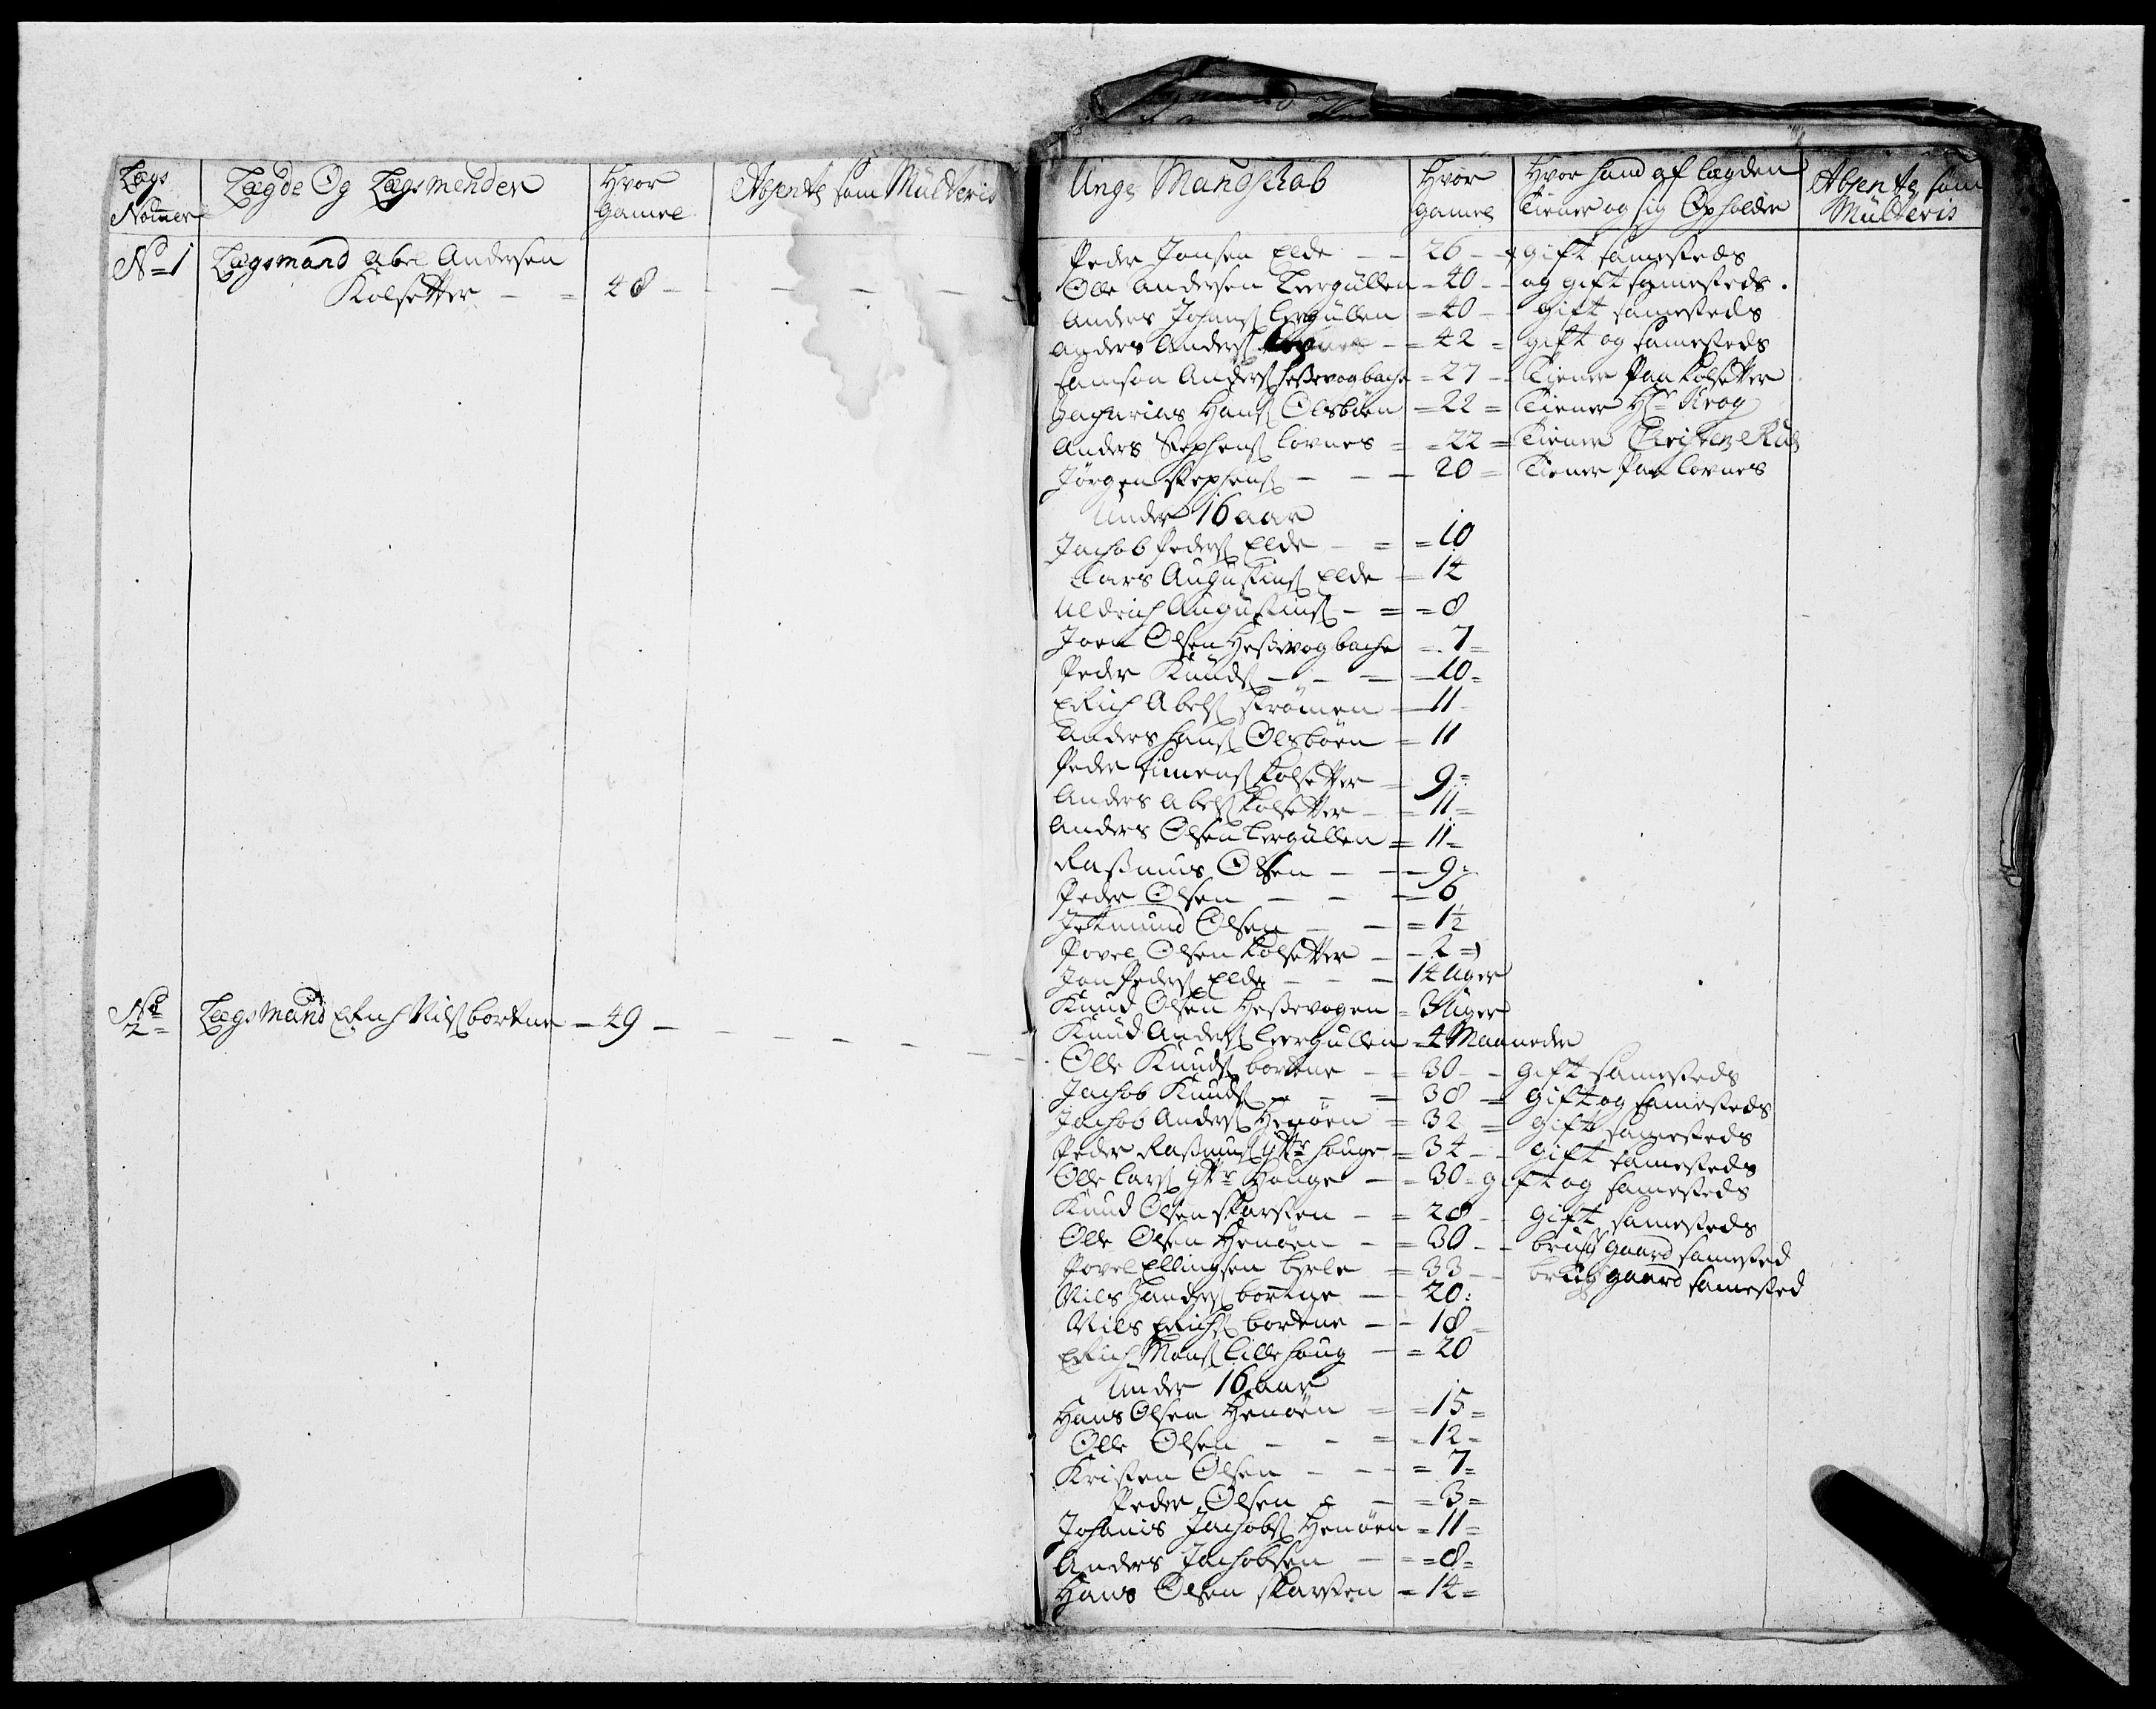 Lægs Nomer
Lægde Og Lægsmender
Hvor gamel
Absente som Multeris
No 1
Lægsmand Abel Andersen
Kolsetter - = 48
No 2
Lægsmand Erich Nils bortne - 49
Unge Mandskab
Hvor gamel
Hvor hand af lægden Tiener og sig Opholder
Absente som Multeris
Peder Jonsen Elde - - 26 - gift samesteds
Olle Andersen Leergullen - 40 - og gift samesteds.
Anders Johans Leergullen = 40 - gift samesteds
Anders Anders - = 42 = gift og samesteds
Samson Anders Hessevogbache = 27 - Tiener Paa Kolsetter
Zacharias Hans Olsböen = 22 = Tiener Hr Krog
Anders Stephens Lovnes = = 22 = Tiener
Jörgen Stephens - - - 20 = Tiener Paa Lovnes
Under 16 aar
Jachob Peders Elde - = = 10
Lars Augustins Elde = 14
Uldrich Augustins - = = 8
Joen Olsen Hessevogbache = 7 =
Peder Knuds - - - 10 =
Erich Abels Strömen - 11 -
Anders Hans Olsböen = 11
Peder Simens Kolsetter = 9 =
Anders Abels Kolsetter - = 11 =
Anders Olsen Leergullen = 11 =
Rasmus Olsen - - - 9 =
Peder Olsen - - - 6
Jetmund Olsen - - = 1½
Povel Olsen Kolsetter - - 2 =
Jon Peders Elde - - - 14 Uger
Knud Olsen Hessevogen = 3 Uger
Knud Anders Leergullen = 4 Maaneder
Olle Knuds bortne - = 30 - - gift samesteds
Jachob Knuds - - = 38 = gift og samesteds
Jachob Anders Henöen = 32 = gift samesteds
Peder Rasmus Ytre Houge = 34 - - gift samesteds
Olle Lars Ytre Houge - = 30 = gift og samesteds
Knud Olsen Skarsten - = 28 - gift samesteds
Olle Olsen Henöen - = 30 - - brug gaard samested
Povel Ellingsen Berle = 33 - - brug gaard samested
Nils Zanders bortne - - 20 :
Nils Erichs bortne - - 18
Erich Mons Lillehoug - = 20
Under 16 aar
Hans Olsen Henöen = = 15 =
Olle Olsen - - = - 12 -
Kristen Olsen - - - = 7 =
Peder Olsen - - = 3 =
Johanis Jachobs Henöen = 11 =
Anders Jachobsen - - = 8 =
Hans Olsen Skarsten = 14 =